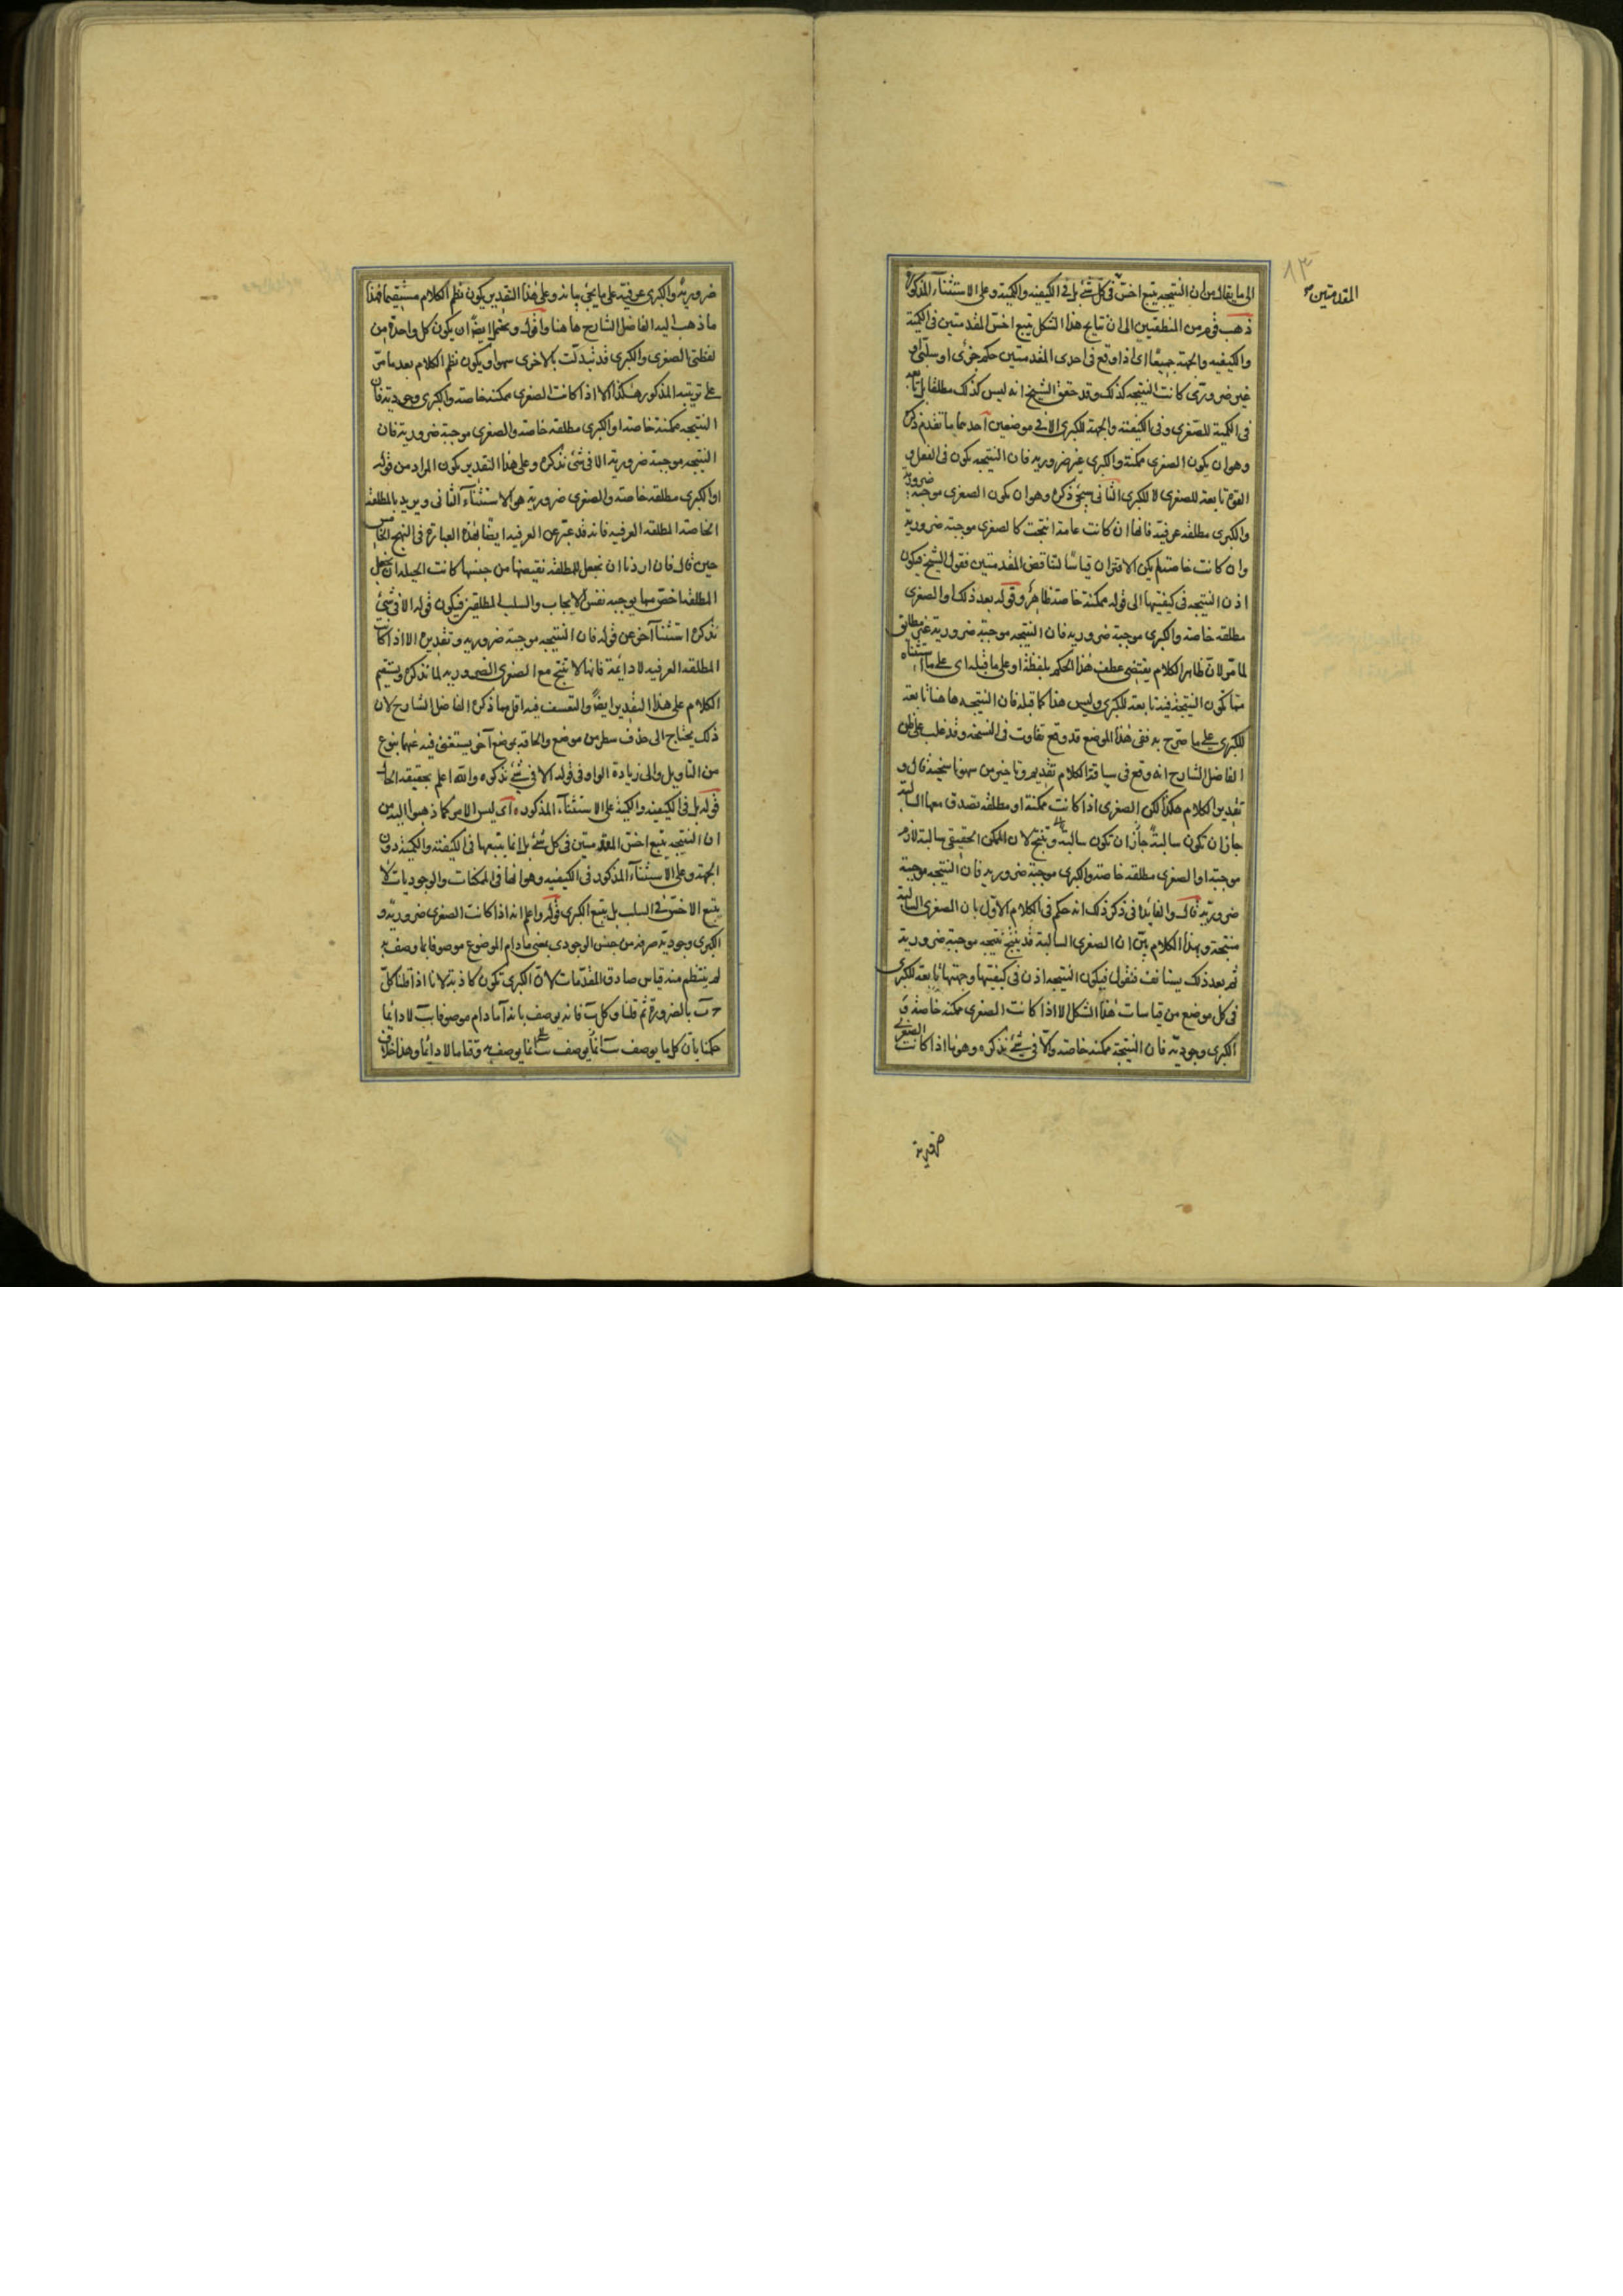 الى ما يقال من ان النتيجه يتبع اخسّ فى كل شئ بل فى الكيفيه والكمية وعلى الاستثناء المذكور
المقدمتين
ذهب قوم من المنطقيين الى ان نتايج هذا الشكل يتبع اخس المقدمتين فى الكمية
والكيفيه والجهة جميعًا اى اذا وقع فى احدى المقدمتين حكم جزئ او سلبى او
غير ضرورى كانت النتيجه كذلك وقد حقق الشيخ انه ليس كذلك مطلقا بل تابعه
فى الكمية للصغرى وفى الكيفية والجهة للكبرى الا فى موضعين احدهما ما تقدم ذكره
وهو ان يكون الصغرى ممكنة والكبرى غير ضروريه فان النتيجه يكون فى الفعل و
القوة تابعة للصغرى لا للكبرى الثانى سيجئ ذكره وهو ان يكون الصغرى موجبة ضرورية
والكبرى مطلقه عرفية فانها ان كانت عامة انتجت كالصغرى موجبة ضرورية
وان كانت خاصة لم يكن الاقتران قياسًا لتناقض المقدمتين فقول الشيخ فيكون
اذن النتيجه فى كيفيتها الى قوله ممكنة خاصة ظاهر وقوله بعد ذلك او الصغرى
مطلقه خاصه والكبرى موجبة ضروريه فان النتيجه موجبة ضرورية غير مطابق
لما مرّ لان ظاهر الكلام يقتضى عطف هذا الحكم بلفظة او على ما قبله اى على ما استثناه
مما تكون النتيجة فيه تابعة للكبرى وليس هذا كما قبله فان النتيجه هاهنا تابعة
للكبرى على ما صرّح به ففى هذا الموضع قد وقع تفاوت فى النسخة وقد غلب على ظن
الفاضل الشارح انه وقع فى سياقة الكلام تقديم وتاخير من سهو ناسخيه قال و
تقدير الكلام هكذا لكن الصغرى اذا كانت ممكنة او مطلقه تصدق معها السالبة
جاز ان تكون سالبة وتنتج لان الممكن الحقيقى سالبه لازم
موجبة او الصغرى مطلقه خاصه والكبرى موجبة ضروريه فان النتيجه موجبة
ضرورية قال والفايدة فى ذكر ذلك انه حكم فى الكلام الاول بان الصغرى السالبة
منتجة وبهذا الكلام بيّن ان الصغرى السالبة قد ينتج نتيجه موجبة ضرورية
ثم بعد ذلك يستانف فنقول فيكون النتيجه اذن فى كيفيتها وجهتها تابعه للكبرى
فى كل موضع من قياسات هذا الشكل الا اذا كانت الصغرى ممكنه خاصة و
الكبرى وجوديّة فان النتيجة ممكنه خاصه والا فى شئ نذكره وهو ما اذا كانت الصغرى
ضرورية والكبرى عرفية على ما يجئ بيانه وعلى هذا التقدير يكون نظم الكلام مستقيما فهذا
ما ذهب اليه الفاضل الشارح هاهنا واقول ويحتمل ايضًا ان يكون كل واحدة من
لفظتى الصغرى والكبرى قد تبدلت بالاخرى سهوا ويكون نظم الكلام بعد ما مرّ
على ترتيبه المذكور هكذا الا اذا كانت الصغرى ممكنه خاصه والكبرى وجودية فان
النتيجه ممكنة خاصه او الكبرى مطلقه خاصه والصغرى موجبة ضرورية فان
النتيجه موجبة ضرورية الا فى شئ نذكره وعلى هذا التقدير يكون المراد من قوله
او الكبرى مطلقه خاصة والصغرى ضرورية هو الاستثناء الثانى ويريد بالمطلقة
الخاصه المطلقه العرفيه فانه قد عبّر عن العرفيه ايضا بهذه العبارة فى النهج الخامس
حين قال فان اردنا ان نجعل للمطلقه نقيضها من جنسها كانت الحيله ان نجعل
المطلقة اخص مما يوجبه نفس الايجاب والسلب المطلقين فيكون قوله الا فى شئ
نذكره استثناً آخر عن قوله فان النتيجه موجبة ضروريه وتقديره الا اذا كانت
المطلقه العرفيه لادائمة فانها لا تنتج مع الصغرى الضروريه لما نذكره ويستقيم
الكلام على هذا التقدير ايضًا والتعسف فيه اقل مما ذكره الفاضل الشارح لان
ذلك يحتاج الى حذف سطر من موضع والحاقه بموضع آخر يستغنى فيه عنهما بنوع
من التاويل والى زيادة الواو فى قوله الا فى شئ نذكره والله اعلم بحقيقه الحال
قوله بل فى الكيفيه والكمية على الاستثناء المذكور اى ليس الامر كما ذهبوا اليه من
ان النتيجه يتبع اخسّ المقدمتين فى كل شئ بل انما يتبعها فى الكيفية والكمية دون
الجهة وعلى الاستثناء المذكور فى الكيفيه وهو انها فى الممكنات والوجوديات لا
يتبع الاخس فى السلب بل يتبع الكبرى قوله واعلم انه اذا كانت الصغرى ضروريّة و
الكبرى وجودية صرفه من جنس الوجودى بمعنى ما دام الموضوع موصوفا بما وصف به
لم ينتظم منه قياس صادق المقدمات لان الكبرى تكون كاذبه لانا اذا قلنا كل
ج ب بالضرورة ثم قلنا وكل ب فانه يوصف بانه آ ما دام موصوفا ب لا دائما
حكمنا بان كل ما يوصف ب انما يوصف ب وقتا ما لا دائما وهذا خلاف
صرفية